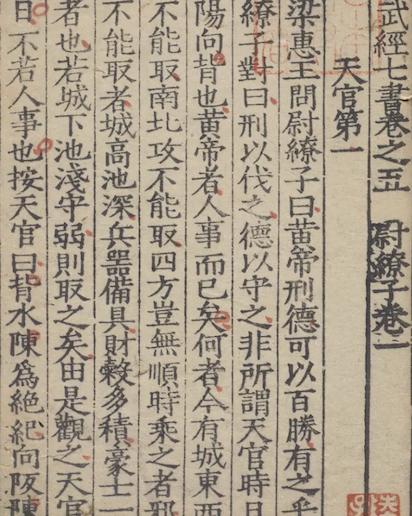 武經七書卷之五 尉繚子卷一
天官第一
梁惠王問尉繚子曰黄帝刑德可以百勝有之乎
繚子對曰刑以伐之德以守之非所謂天官時日
陽向背也黄帝者人事而已矣何者今有城東西
不能取南北攻不能取四方豈無順時乘之者邪
不能取者城高池深兵器備具財穀多積豪士一
者也若城下池淺守弱則取之矣由是觀之天官
日不若人事也按天官曰背水陳爲絶紀向阪陳